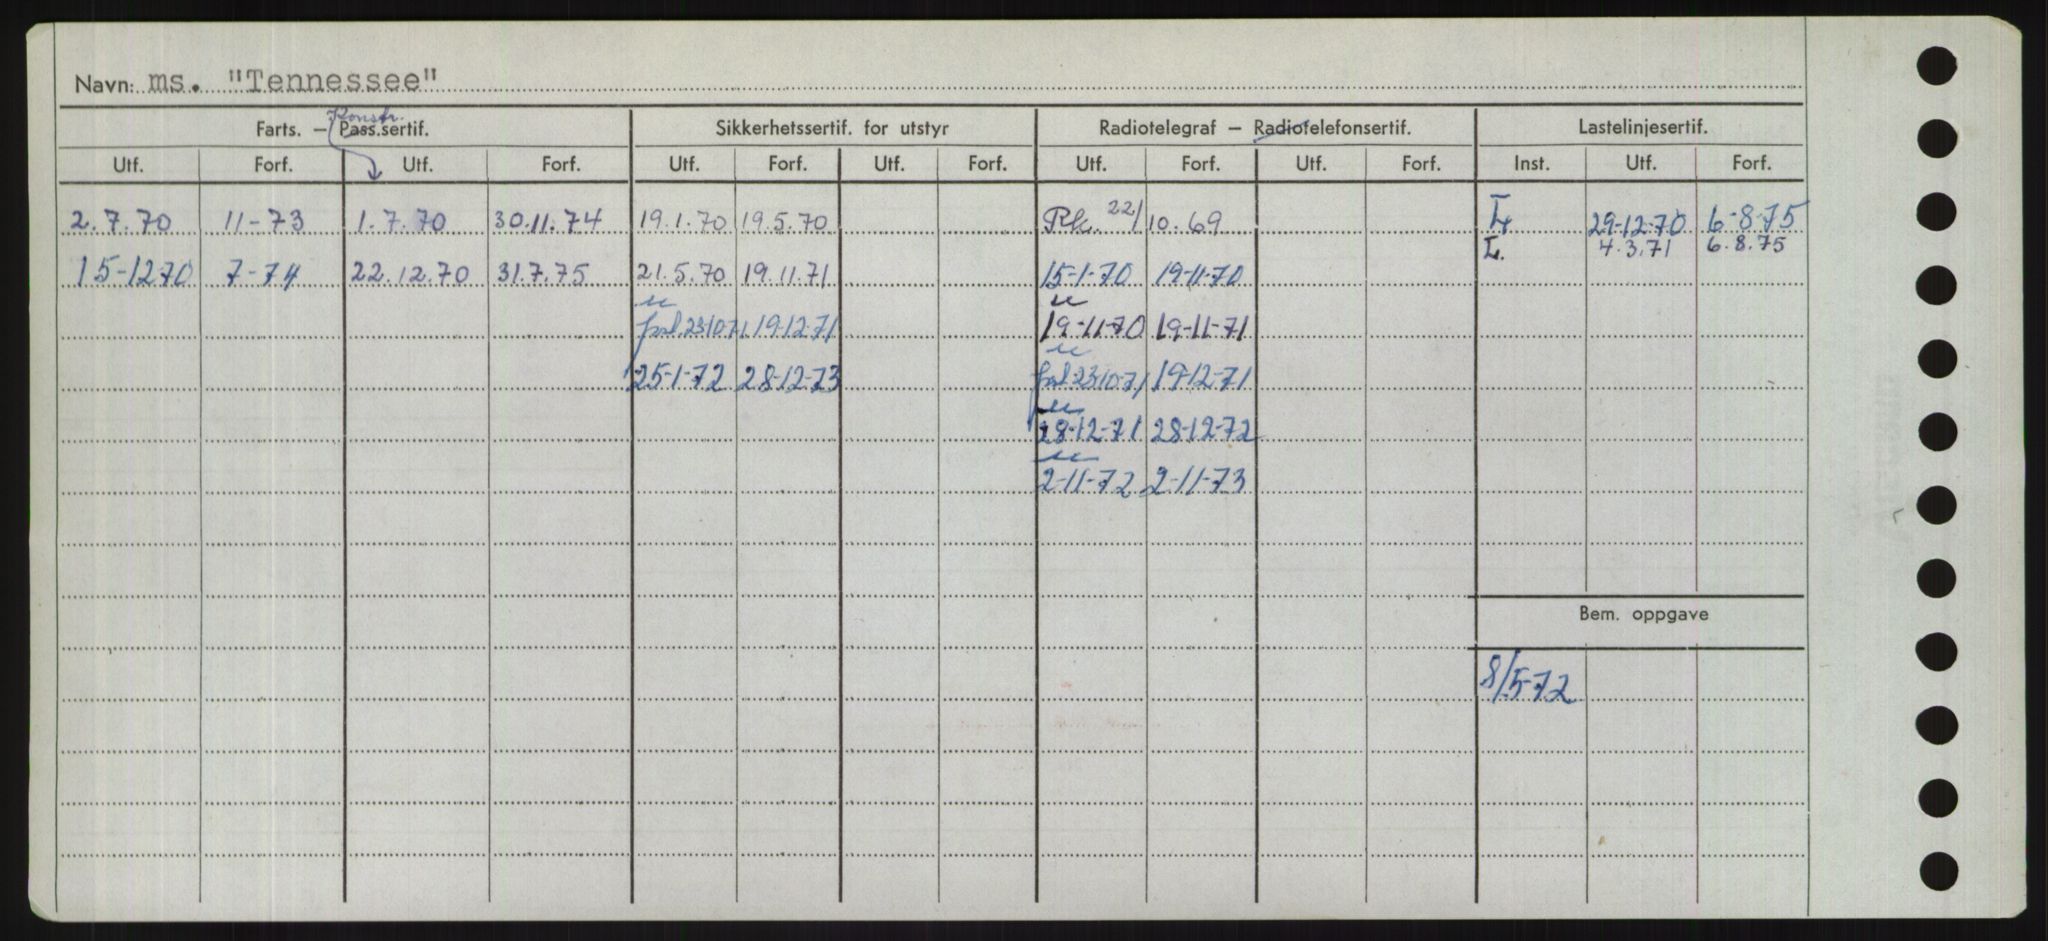 Navn: ms. "Tennessee"
Konstr.
Farts. — Pass.sertif. Sikkerhetssertif. for utstyr Radiotelegraf — Radiotelefonsertif. Lastelinjesertif.
Utf. Forf. Utf. Forf. Utf. Forf. Utf. Forf. Utf. Forf. Utf. Forf. Inst. Utf. Forf.
2.7.70 11-73 1.7.70 30.11.74 19.1.70 19.5.70 Rk. 22/10.69 L 29-12-70 6-8-75
L. 4.3.71 6.8.75
15-1270 7-74 22.12.70 31.7.75 21.5.70 19.11.71 15-1-70 19-11-70
forl. 23-10-71 19-12-71 19-11-70 19-11-71
25-1-72 28-12-73 forl. 23-10-71 19-12-71
28-12-71 28-12-72
2-11-72 2-11-73
Bem. oppgave
8/5-72